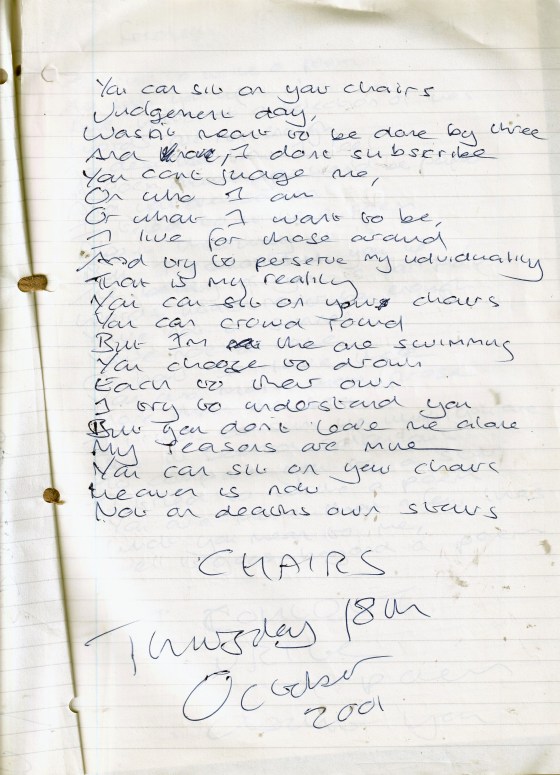 You can sit on your chairs
Judgement day,
Wasn't meant to be done by three
And, I dont subscribe
You cant judge me,
Or who I am
Or what I want to be,
I live for those around
And try to perserve my individuality
That is my reality
You can sit on your chairs
You can crowd round
But I'm the one swimming
You choose to drown
Each to their own
I try to understand you
But you don't leave me alone
My reasons are mine
You can sit on your chairs
Heaven is now
Not on deaths own stairs
CHAIRS
Thursday 18th
October
2001